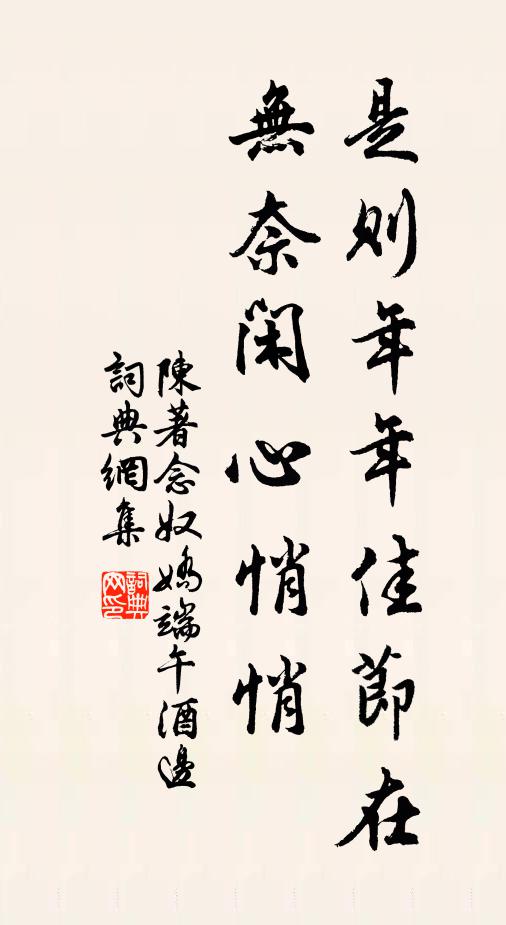 是則年年佳節在
無奈閑心悄悄
陳著念奴嬌端午酒邊
詞典網集
詞典
网印